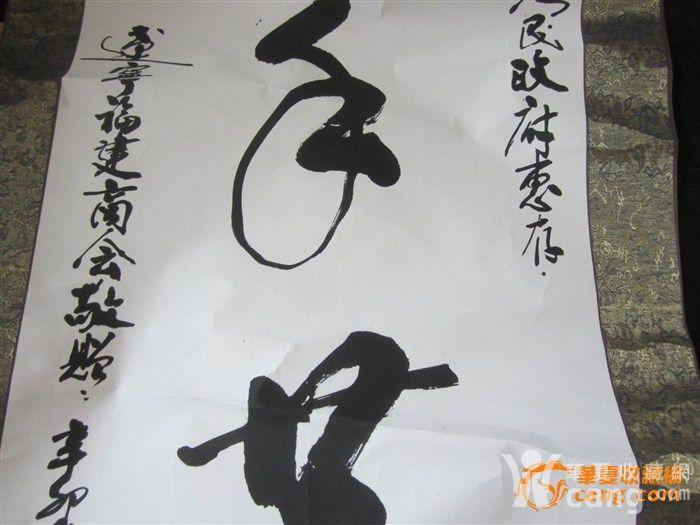 民政府惠存
遼寧福建商会敬赠 辛卯
華夏收藏網
cang.com